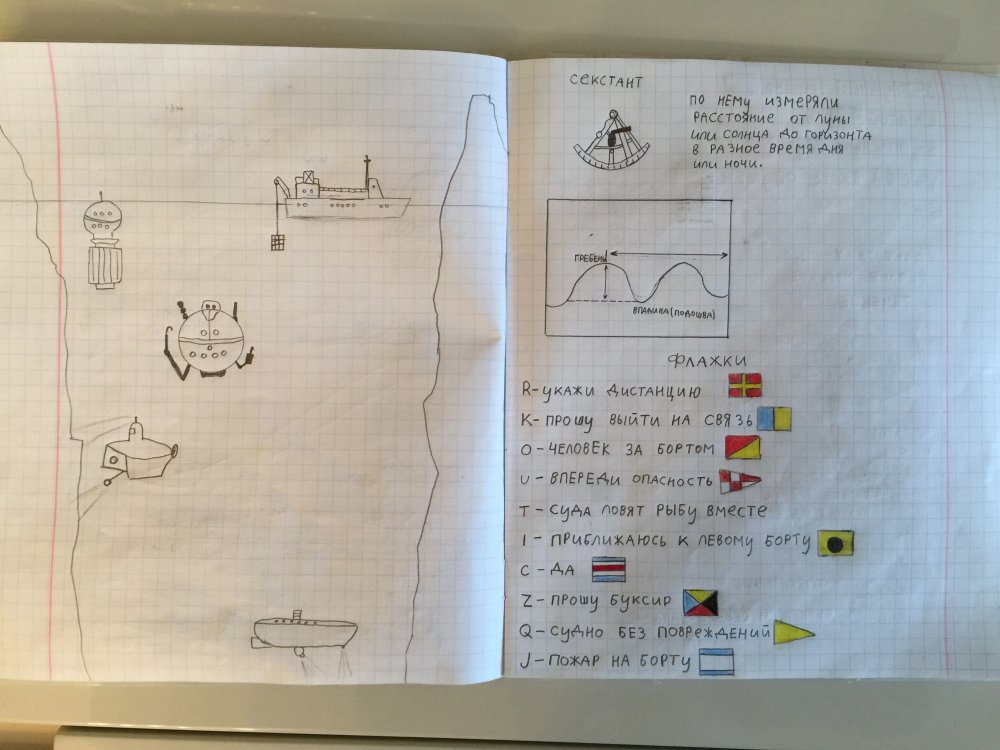 СЕКСТАНТ
ПО НЕМУ ИЗМЕРЯЛИ
РАССТОЯНИЕ ОТ ЛУНЫ
ИЛИ СОЛНЦА ДО ГОРИЗОНТА
В РАЗНОЕ ВРЕМЯ ДНЯ
ИЛИ НОЧИ.
ГРЕБЕНЬ
ВПАДИНА (ПОДОШВА)
ФЛАЖКИ
R - УКАЖИ ДИСТАНЦИЮ
K - ПРОШУ ВЫЙТИ НА СВЯЗЬ
O - ЧЕЛОВЕК ЗА БОРТОМ
U - ВПЕРЕДИ ОПАСНОСТЬ
T - СУДА ЛОВЯТ РЫБУ ВМЕСТЕ
I - ПРИБЛИЖАЮСЬ К ЛЕВОМУ БОРТУ
C - ДА
Z - ПРОШУ БУКСИР
Q - СУДНО БЕЗ ПОВРЕЖДЕНИЙ
J - ПОЖАР НА БОРТУ